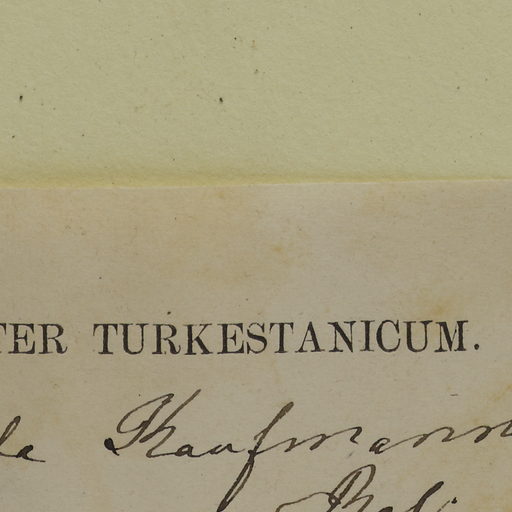 TER TURKESTANICUM.
la Kaufmann
Reg